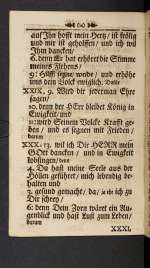 auf Ihn hofft mein Hertz, ist frölig
und mir ist geholffen, und ich wil
Ihm dancken/
6. denn Er hat erhöret die Stimme
meines Flehens/
9: Hilff segne, weide, und erhöhe
uns dein Volck ewiglich.
XXIX, 9. Wird dir jederman Ehre
sagen/
10. denn der HErr bleibet König in
Ewigkeit/ und
11: wird Seinem Volcke Krafft ge-
ben / und es segnen mit Frieden/
darum
XXX: 13. wil ich Dir HERR mein
GOtt dancken / und in Ewigkeit
lobsingen/ denn
4. Du hast meine Seele aus der
Höllen geführet/ mich lebendig be-
halten und
3. gesund gemacht/ da, ich zu
Dir schrey /
6: denn Dein Zorn wäret ein Au-
genblick und hast Lust zum Leben/
darum
XXXI,